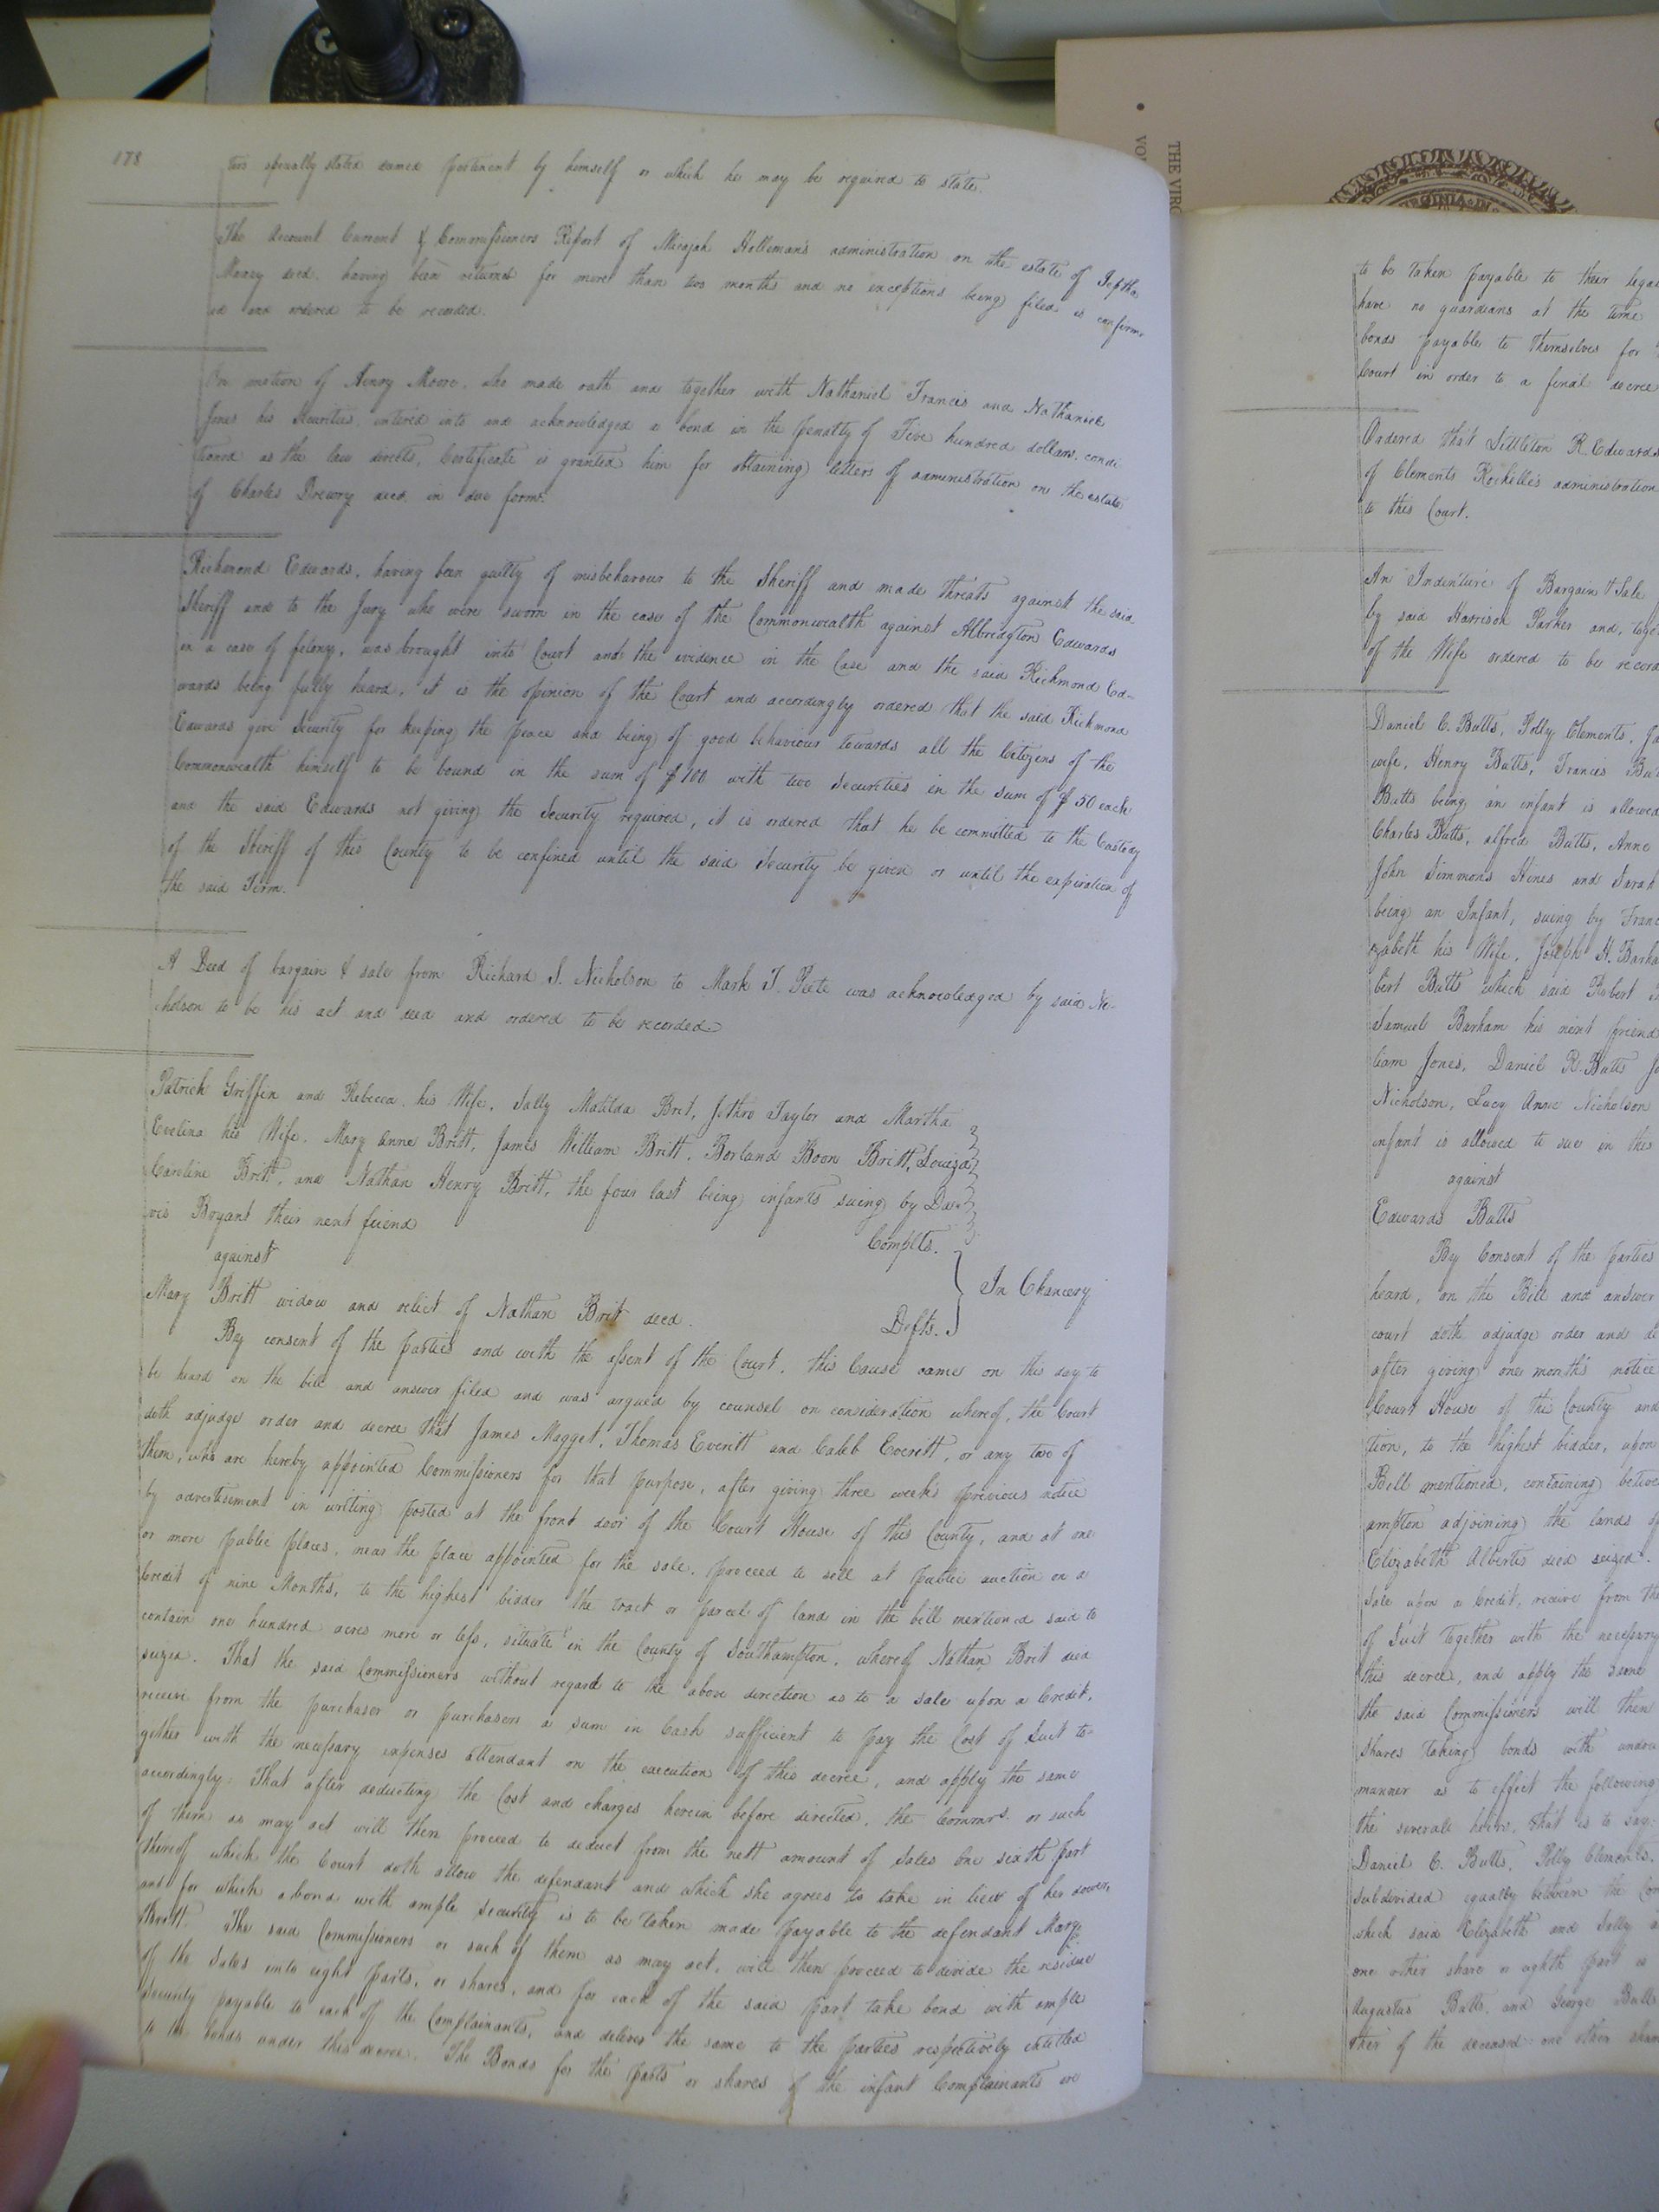 178
ters specially stated deemed pertinent by himself or which he may be required to state.
The Account Current & Commissioners Report of Micajah Holleman's administration on the estate of Jeptha
Massey decd. having been returned for more than two months and no exceptions being filed is confirm-
ed and ordered to be recorded.
On motion of Henry Moore, who made oath and together with Nathaniel Francis and Nathaniel
Jones his Securities, entered into and acknowledged a bond in the penalty of Five hundred dollars, condi
tioned as the law directs, Certificate is granted him for obtaining letters of administration on the estate
of Charles Drewry decd. in due form.
Richmond Edwards, having been guilty of misbehaviour to the Sheriff and made threats against the said
Sheriff and to the Jury who were sworn in the case of the Commonwealth against Albridgton Edwards
in a case of felony, was brought into Court and the evidence in the Case and the said Richmond Ed-
wards being fully heard, it is the opinion of the Court and accordingly ordered that the said Richmond
Edwards give Security for keeping the peace and being of good behaviour towards all the Citizens of the
Commonwealth himself to be bound in the sum of $100 with two Securities in the sum of $50 each
and the said Edwards not giving the Security required, it is ordered that he be committed to the Custody
of the Sheriff of this County to be confined until the said Security be given or until the expiration of
the said Term.
A Deed of bargain & sale from Richard S. Nicholson to Mark T. Peete was acknowledged by said Ni-
cholson to be his act and deed and ordered to be recorded
Patrick Griffin and Rebecca his Wife, Sally Matilda Brit, Jethro Taylor and Martha
Evelina his Wife, Mary Anne Britt, James William Britt, Borland Boon Britt, Louiza
Caroline Britt, and Nathan Henry Britt, the four last being infants suing by Da-
vis Bryant their next friend
Complts.
against
In Chancery
Mary Britt widow and relict of Nathan Brit decd.
Defts.
By consent of the parties and with the assent of the Court, this Cause came on this day to
be heard on the bill and answer filed and was argued by counsel on consideration whereof, the Court
doth adjudge order and decree that James Magget, Thomas Everitt and Caleb Everitt, or any two of
them, who are hereby appointed Commissioners for that purpose, after giving three week's previous notice
by advertisement in writing posted at the front door of the Court House of this County, and at one
or more public places, near the place appointed for the sale, proceed to sell at public auction on a
Credit of nine Months, to the highest bidder the tract or parcel of land in the bill mentioned said to
contain one hundred acres more or less, situate in the County of Southampton, whereof Nathan Brit died
seized. That the said Commissioners without regard to the above direction as to a sale upon a Credit,
receive from the purchaser or purchasers a sum in Cash sufficient to pay the Cost of Suit to-
gether with the necessary expenses attendant on the execution of this decree, and apply the same
accordingly. That after deducting the Cost and charges herein before directed, the Commrs. or such
of them as may act will then proceed to deduct from the nett amount of Sales one sixth part
thereof which the Court doth allow the defendant and which she agrees to take in lieu of her dower,
and for which a bond with ample security is to be taken made payable to the defendant Mary
Britt. The said Commissioners or such of them as may act, will then proceed to divide the residue
of the Sales into eight parts, or shares, and for each of the said part take bond with ample
security payable to each of the Complainants, and deliver the same to the parties respectively entitled
to the bonds under this decree. The Bonds for the parts or shares of the infant Complainants are
THE VIRG
VO
VIRGINIA
to be taken payable to their lega
have no guardians at the time
bonds payable to themselves for
Court in order to a final decree
Ordered that Littleton R. Edwards
of Clements Rochelle's administration
to this Court.
An Indenture of Bargain & Sale
by said Harrison Parker and, toge
of the Wife ordered to be recor
Daniel C. Butts, Polly Clements, Ja
wife, Henry Butts, Francis But
Butts being an infant is allowed
Charles Butts, Alfred Butts, Anne
John Simmons Hines and Sarah
being an Infant, suing by Franc
zabeth his Wife, Joseph H. Barha
bert Butts which said Robert B
Samuel Barham his next friend
liam Jones, Daniel R. Butts Jo
Nicholson, Lucy Anne Nicholson
infant is allowed to sue in this
against
Edwards Butts
By Consent of the parties
heard, on the Bill and answer
court doth adjudge order and de
after giving one month's notice
Court House of this County and
tion, to the highest bidder, upon
Bill mentioned, containing betwe
ampton adjoining the lands of
Elizabeth Alberts died seized.
Sale upon a Credit, receive from the
of Suit together with the necessary
this decree, and apply the same
the said Commissioners will then
shares taking bonds with
manner as to effect the following
the several heirs, that is to say:
Daniel C. Butts, Polly Clements,
subdivided equally between the Com
which said Elizabeth and Sally
one other share or eighth part to
Augustus Butts, and George Butts
ther of the deceased one other shar